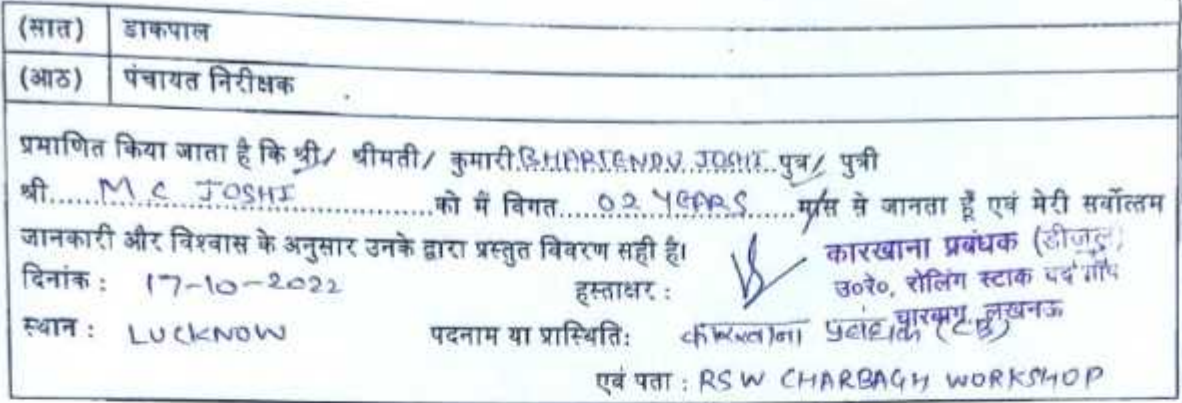 (सात) डाकपाल
(आठ) पंचायत निरीक्षक
प्रमाणित किया जाता है कि श्री/ श्रीमती/ कुमारी BHARTENDU JOSHI पुत्र/ पुत्री
श्री..... M C JOSHI ..................को मैं विगत.... 02 YEARS .......मास से जानता हूँ एवं मेरी सर्वोत्तम
जानकारी और विश्वास के अनुसार उनके द्वारा प्रस्तुत विवरण सही है।
कारखाना प्रबंधक (डीजल)
दिनांक : 17-10-2022 हस्ताक्षर :
उ०रे०, रोलिंग स्टाक
चारबाग, लखनऊ
स्थान : LUCKNOW पदनाम या प्रास्थिति: कारखाना प्रबंधक
एवं पता : RSW CHARBAGH WORKSHOP